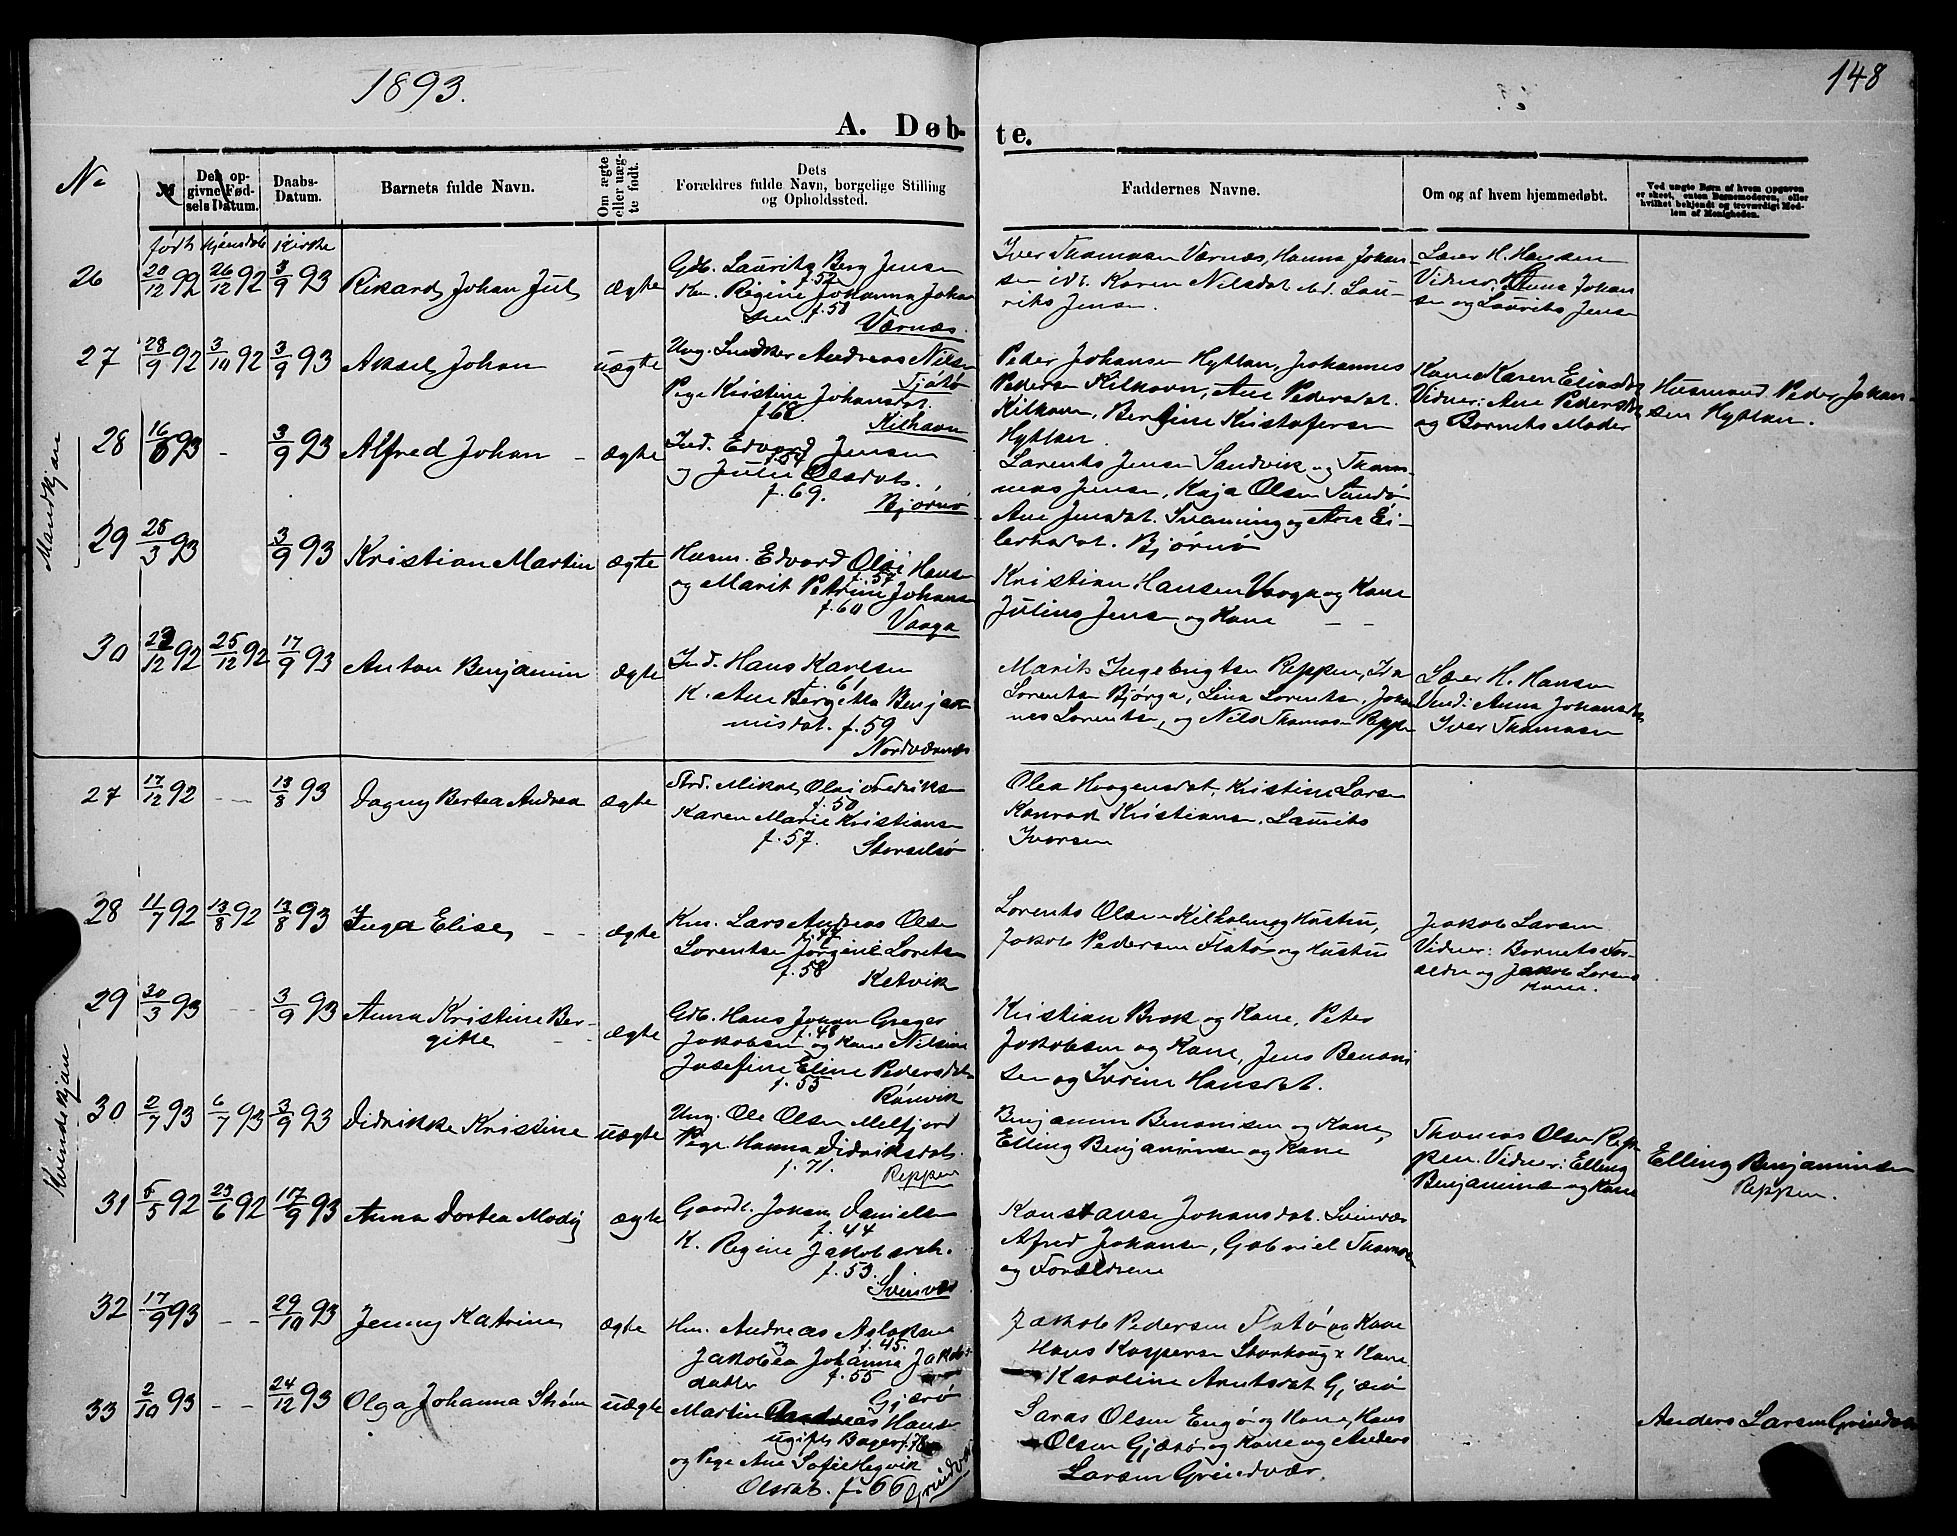 1893.
148
A. Døb-
te.
No
Den op-
givne Fød-
sels Datum.
Daabs-
Datum.
Barnets fulde Navn.
Om ægte
eller uæg-
te født.
Dets
Forældres fulde Navn, borgelige Stilling
og Opholdssted.
Faddernes Navne.
Om og af hvem hjemmedøbt.
Ved uægte Børn af hvem Opgaven
er skeet, enten Barnemoderen, eller
hvilket bekjendt og troværdigt Med-
lem af Menigheden.
født hjemdøb Kirke
Mandkjøn
26 20/12 92 26/12 92 3/9 93 Rikard Johan Jul ægte
Gdb. Laurits Berg Jensen
f. 52
Kn. Regine Johanna Johan
sen f. 58
Værnæs.
Iver Thomasen Værnæs, Hanna Johan-
sen idt. Karen Nilsdat. ibd. Lau-
rits Jensen.
Lærer H. Hansen
Vidner: Anna Johan
sen og Laurits Jensen
27 28/9 92 3/10 92 3/9 93 Aksel Johan uægte
Ung. Snedker Andreas Nilsen
Tjøtø
Pige Kristine Johansdat.
f. 68. Kilhavn
Peder Johansen Hyttan, Johannes
Pedersen Kilhavn, Ane Pedersdat.
Kilhavn, Bergine Kristofersen
Hyttan.
Kone Karen Eliasdat
Vidner: Ane Pedersdat
og Barnets Moder
Husmand Peder Johan-
sen Hyttan.
28 16/8 93 - 3/9 93 Alfred Johan - ægte
Ind. Edvard Jensen
f. 54
og Julie Olsdat.
f. 69.
Bjørnø
Lorents Jensen Sandvik og Thom-
mas Jensen, Kaja Olsen Sundø
Ane Jensdat. Svenning og Ane Ei-
lertsdat. Bjørnø
29 28/3 93 3/9 93 Kristian Martin ægte
Husm. Edvard Olai Hansen
f. 57
og Marit Petrine Johansen
f. 60
Vaaga
Kristian Hansen Vaaga og Kone
Julius Jensen og Kone - -
30 23/12 92 25/12 92 17/9 93 Anton Benjamin ægte
Ind. Hans Karlsen
f. 61
K. Ane Bergitta Benja-
misdat. f. 59
Nordværnæs
Marit Ingebrigtsen Reppen, Ida
Lorentsen Bjørga, Lina Lorentsen, Johan
nes Lorentsen, og Nils Thomasen Reppen
Lærer H. Hansen
Vind: Anna Johansdat
Iver Thomasen
Kvindekjøn
27 17/12 92 - - 13/8 93 Dagny Bertea Andrea ægte
Strd. Mikal Olai Fredriksen
f. 50
Karen Marie Kristiansen
f. 57. Storselsø
Olea Haagensdat. Kristine Larsen
Konrad Kristiansen, Laurits
Ivarsen
28 11/7 92 13/8 92 13/8 93 Inga Elise - - ægte
Km. Lars Andreas Olsen
f. 47
Lorentsen Jørgine Lorents
f. 58 Ketvik
Lorents Olsen Kilholm og Hustru,
Jakob Pedersen Flatø og Hustru
Jakob Larsen
Vidner: Barnets For-
ældre og Jakob Larsens
Kone.
29 30/3 93 - - 3/9 93 Anna Kristine Ber-
gitte - - ægte
Gdb. Hans Johan Greger
f. 48
Jakobsen og Kone Nilsine
Josefine Eline Pedersdat.
f. 55
Rønvik
Kristian Brok og Kone, Peter
Jakobsen og Kone, Jens Benoni
sen og Ivrine Hansdat.
30 2/7 93 6/7 93 3/9 93 Didrikke Kristine uægte
Ung. Ole Olsen Melfjord
Pige Hanna Didriksdat.
f. 71.
Reppen
Benjamin Benonisen og Kone,
Elling Benjaminsen og Kone
Thomas Olsen Rep-
pen. Vidner: Elling
Benjaminsen og Kone
Elling Benjaminsen
Reppen.
31 5/5 92 23/6 92 17/9 93 Anna Dortea Modig ægte
Gaardb. Johan Danielsen
f. 44
K. Regine Jakobsdt.
f. 53.
Svinvær
Konstanse Johansdat. Svinvær
Alfred Johansen, Gabriel Thomasen
og Forældrene
32 17/9 93 - - 29/10 93 Jenny Katrine ægte
Hm. Andreas Aslaksen
og f. 45.
Jakobea Johanna Jakobs-
datter f. 55
Gjærø
Jakob Pedersen Flatø og Kone
Hans Kaspersen Storhaug x Kone
Karoline Arntsdat Gjærø
33 2/10 93 - - 24/12 93 Olga Johanna Strøm uægte
Martin Andreas Hansen
ugift Bager
og Pige Ane Sofie Hegvik
Olsdat. f. 66 Grindvær
Saras Olsen Engø og Kone, Hans
Olsen Gjærø og Kone og Anders
Larsen Grindvær.
Anders Larsen Grindvær